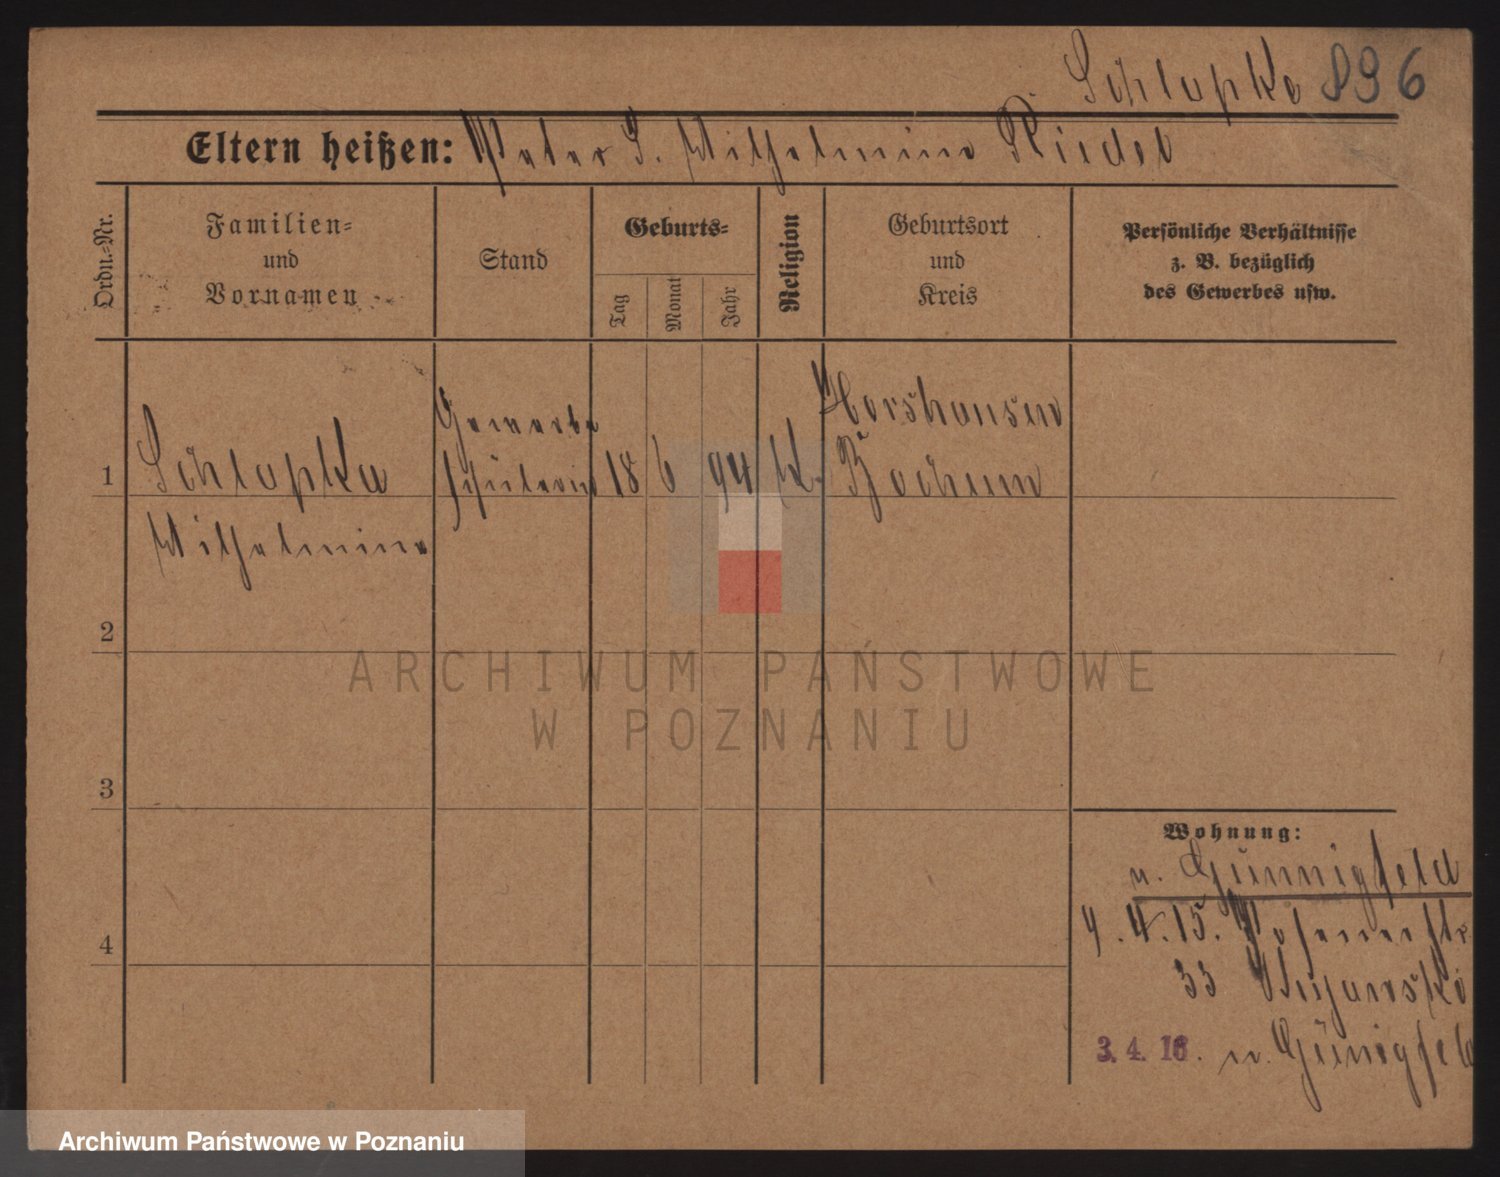 Schlapka 896
Eltern heißen: Peter S. Wilhelmine Riedel
Ordn.-Nr.
Familien-
und
Vornamen
Stand
Geburts-
Tag
Monat
Jahr
Religion
Geburtsort
und
Kreis
Persönliche Verhältnisse
z. B. bezüglich
des Gewerbes usw.
1
Schlapka
Wilhelmine
Gewerbe
schülerin
18
6
94
K.
Horsthausen
Bochum
2
3
4
Wohnung:
n. Günnigfeld
4. 15. Posenerstr.
33
3. 4. 16. n. Günigfeld
ARCHIWUM PAŃSTWOWE
W POZNANIU
Archiwum Państwowe w Poznaniu